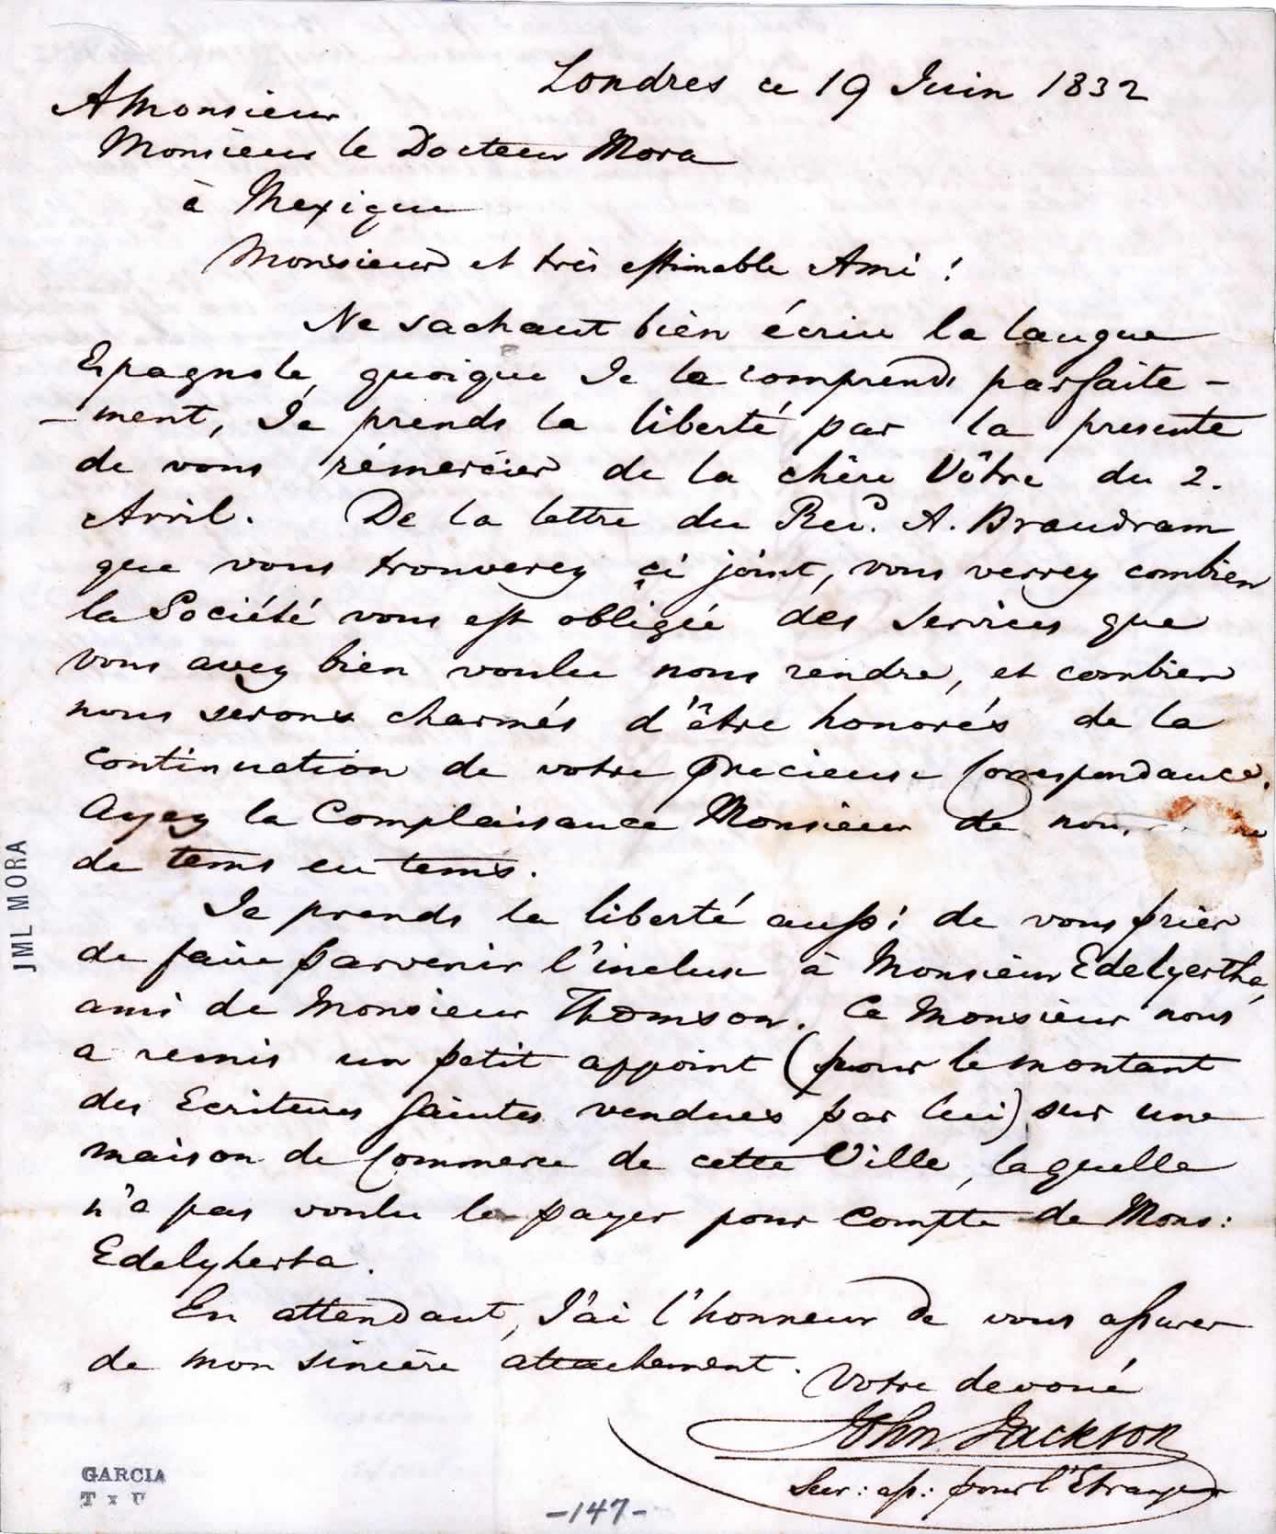 Londres ce 19 Juin 1832
A Monsieur
Monsieur le Docteur Mora
à Mexique
Monsieur et très estimable Ami !
Ne sachant bièn écrire la langue
Espagnole, quoique Je la comprends parfaite-
-ment, Je prends la liberté par la presente
de vous rémercier de la chère Vôtre du 2.
Avril. De la lettre du Revd. A. Brandram
que vous trouverez çi joint, vous verrez combien
la Société vous est obligée des services que
vous avez bien voulu nous rendre, et combien
nous serons charmés d'être honorés de la
continuation de votre precieuse Correspondance.
Ayez la Complaisance Monsieur de nous
de tems en tems.
Je prends la liberté aussi de vous prier
de faire parvenir l'incluse à Monsieur Edelyertha,
ami de Monsieur Thomson. Ce Monsieur nous
a remis un petit appoint (pour le montant
des Ecritures Saintes vendues par lui) sur une
maison de Commerce de cette Ville, laquelle
n'a pas voulu le payer pour Compte de Mons:
Edelyherta.
En attendant, J'ai l'honneur de vous assurer
de mon sincère attachement.
Votre devoué
John Jackson
Secr: ass: pour l'Etranger
JML MORA
GARCIA
T x U
-147-